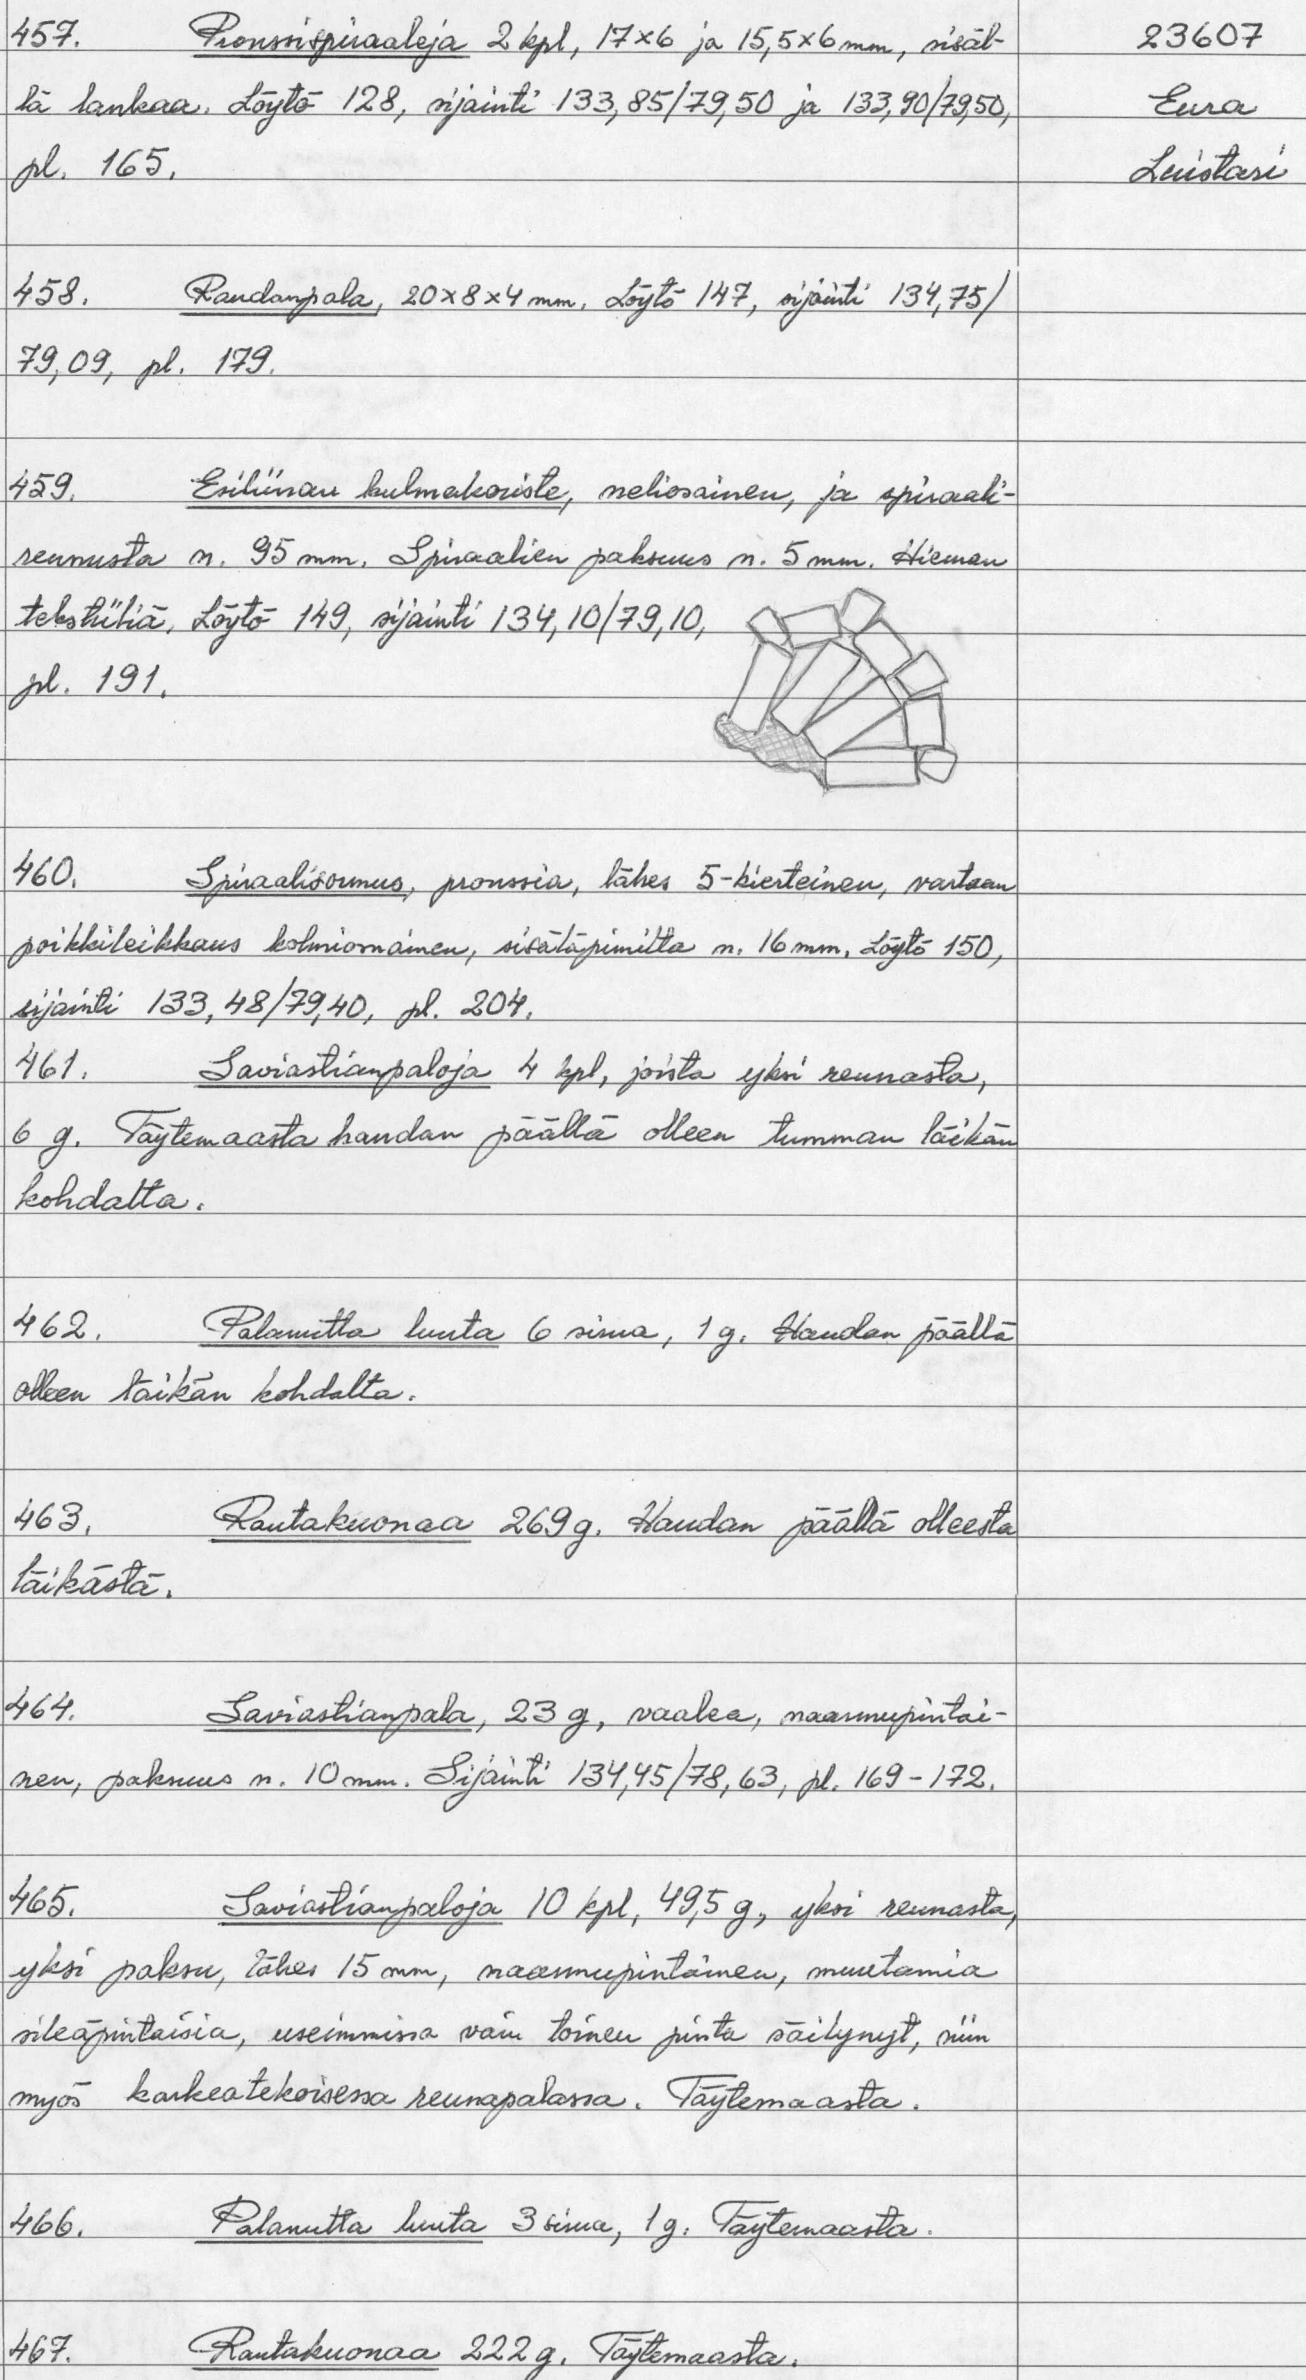 457. Pronssispiraaleja 2 kpl, 17×6 ja 15,5×6 mm, sisäl-
lä lankaa. Löytö 128, sijainti 133,85/79,50 ja 133,90/79,50,
pl. 165.
23607
Eura
Luistari
458. Raudanpala, 20×8×4 mm. Löytö 147, sijainti 134,75/
79,09, pl. 179.
459. Esiliinan kulmakoriste, neliosainen, ja spiraali-
reunusta n. 95 mm. Spiraalien paksuus n. 5 mm. Hieman
tekstiiliä. Löytö 149, sijainti 134,10/79,10,
pl. 191.
460. Spiraalisormus, pronssia, lähes 5-kierteinen, vartaan
poikkileikkaus kolmiomainen, sisäläpimitta n. 16 mm. Löytö 150,
sijainti 133,48/79,40, pl. 204.
461. Saviastianpaloja 4 kpl, joista yksi reunasta,
6 g. Täytemaasta haudan päällä olleen tumman läikän
kohdalta.
462. Palanutta luuta 6 sirua, 1 g. Haudan päällä
olleen läikän kohdalta.
463. Rautakuonaa 269 g. Haudan päällä olleesta
läikästä.
464. Saviastianpala, 23 g, vaalea, naarmupintai-
nen, paksuus n. 10 mm. Sijainti 134,45/78,63, pl. 169-172.
465. Saviastianpaloja 10 kpl, 49,5 g, yksi reunasta,
yksi paksu, lähes 15 mm, naarmupintainen, muutamia
sileäpintaisia, useimmissa vain toinen pinta säilynyt, niin
myös karkeatekoisessa reunapalassa. Täytemaasta.
466. Palanutta luuta 3 sirua, 1 g. Täytemaasta.
467. Rautakuonaa 222 g. Täytemaasta.